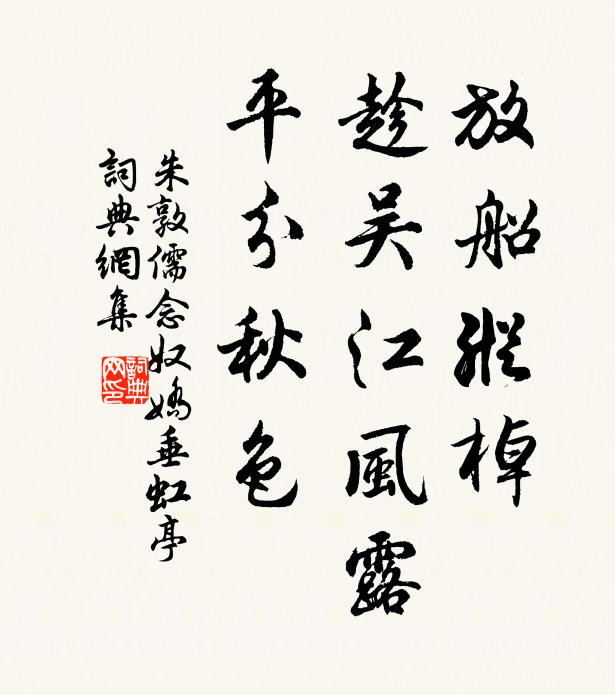 放船縱棹
趁吳江風露
平分秋色
朱敦儒念奴嬌垂虹亭
詞典網集
詞典
网印